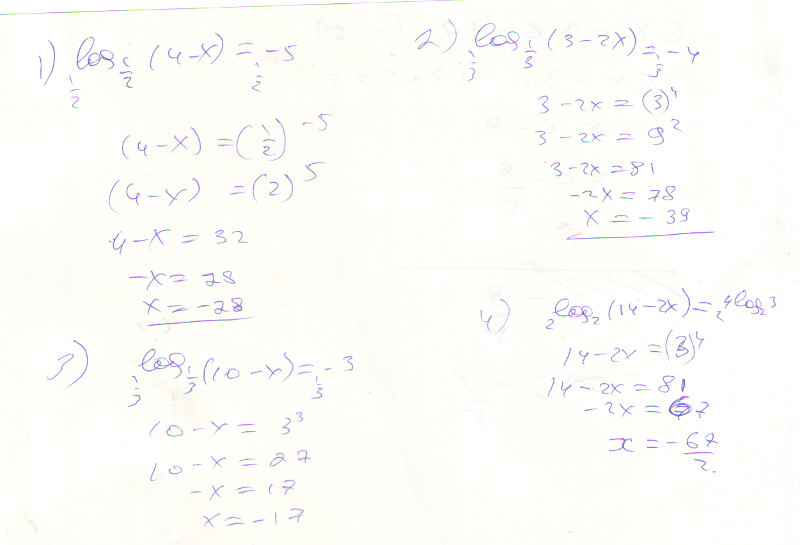 1) ½^log_½ (4-x) = ½^-5
(4-x) = (½)^-5
(4-x) = (2)^5
4-x = 32
-x = 28
x = -28
2) ⅓^log_⅓ (3-2x) = ⅓^-4
3-2x = (3)^4
3-2x = 9^2
3-2x = 81
-2x = 78
x = -39
3) ⅓^log_⅓ (10-x) = ⅓^-3
10-x = 3^3
10-x = 27
-x = 17
x = -17
4) 2^log_2 (14-2x) = 2^4log_2 3
14-2x = (3)^4
14-2x = 81
-2x = 67
x = -67/2.